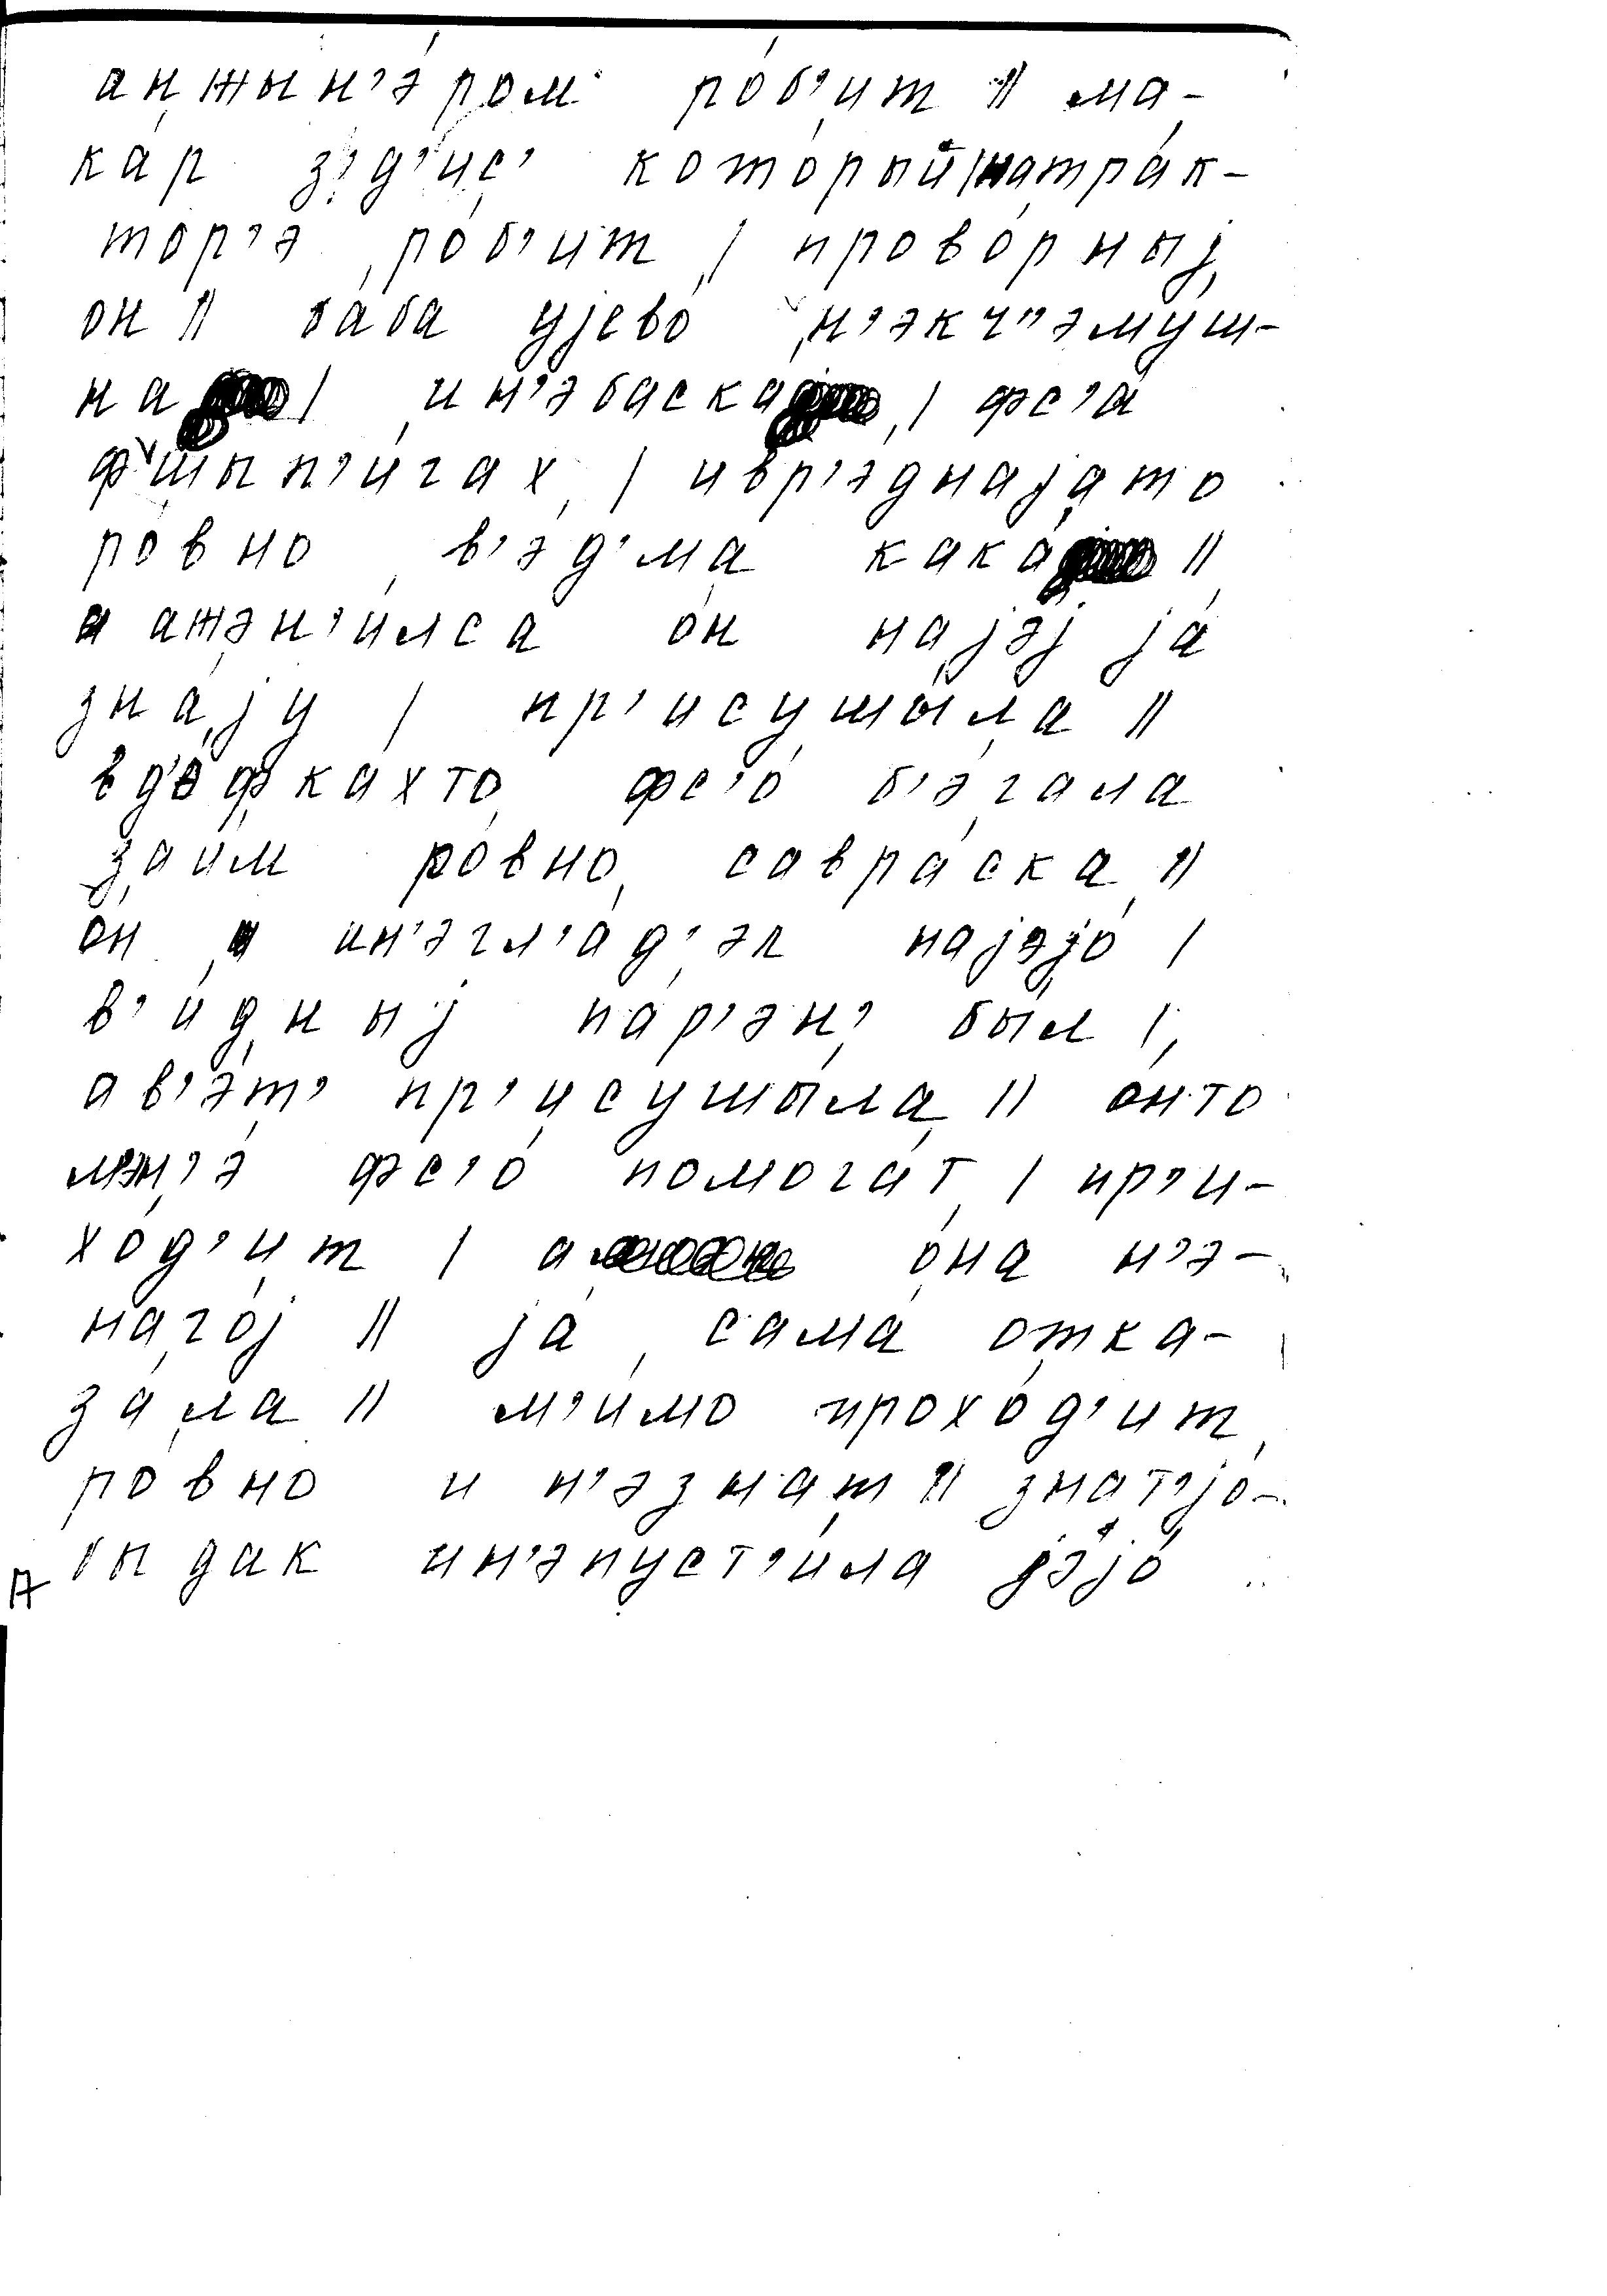 анжын'э́ром ро́б'ит // ма-
ка́р з'д'ис' кото́рый/натра́к-
тор'э ро́б'ит / прово́рныј
он // ба́ба ујево́ н'экч''эму́ш-
на / ин'эбаска / фс'а́
фшып'и́гах / ивр'э́днајато
ро́вно в'э́д'ма кака́ //
ажэн'и́лса о́н најэ́ј ја́
зна́ју / пр'исушы́ла //
вд'э́фкахто фс'о́ б'э́гала
заи́м ро́вно савра́ска //
о́н ин'эгл'а́д'эл најэјо́ /
в'и́дныј па́р'эн' бы́л /
ав'э́т' пр'исушы́ла // о́нто
мэн'э́ фс'о́ помога́т / пр'и-
хо́д'ит / а о́на н'э-
наго́ј // ја́ сама́ отка-
за́ла // м'и́мо прохо́д'ит
ро́вно и н'эзнат // знат'јо-
бы дак ин'эпуст'и́ла јэјо́
А